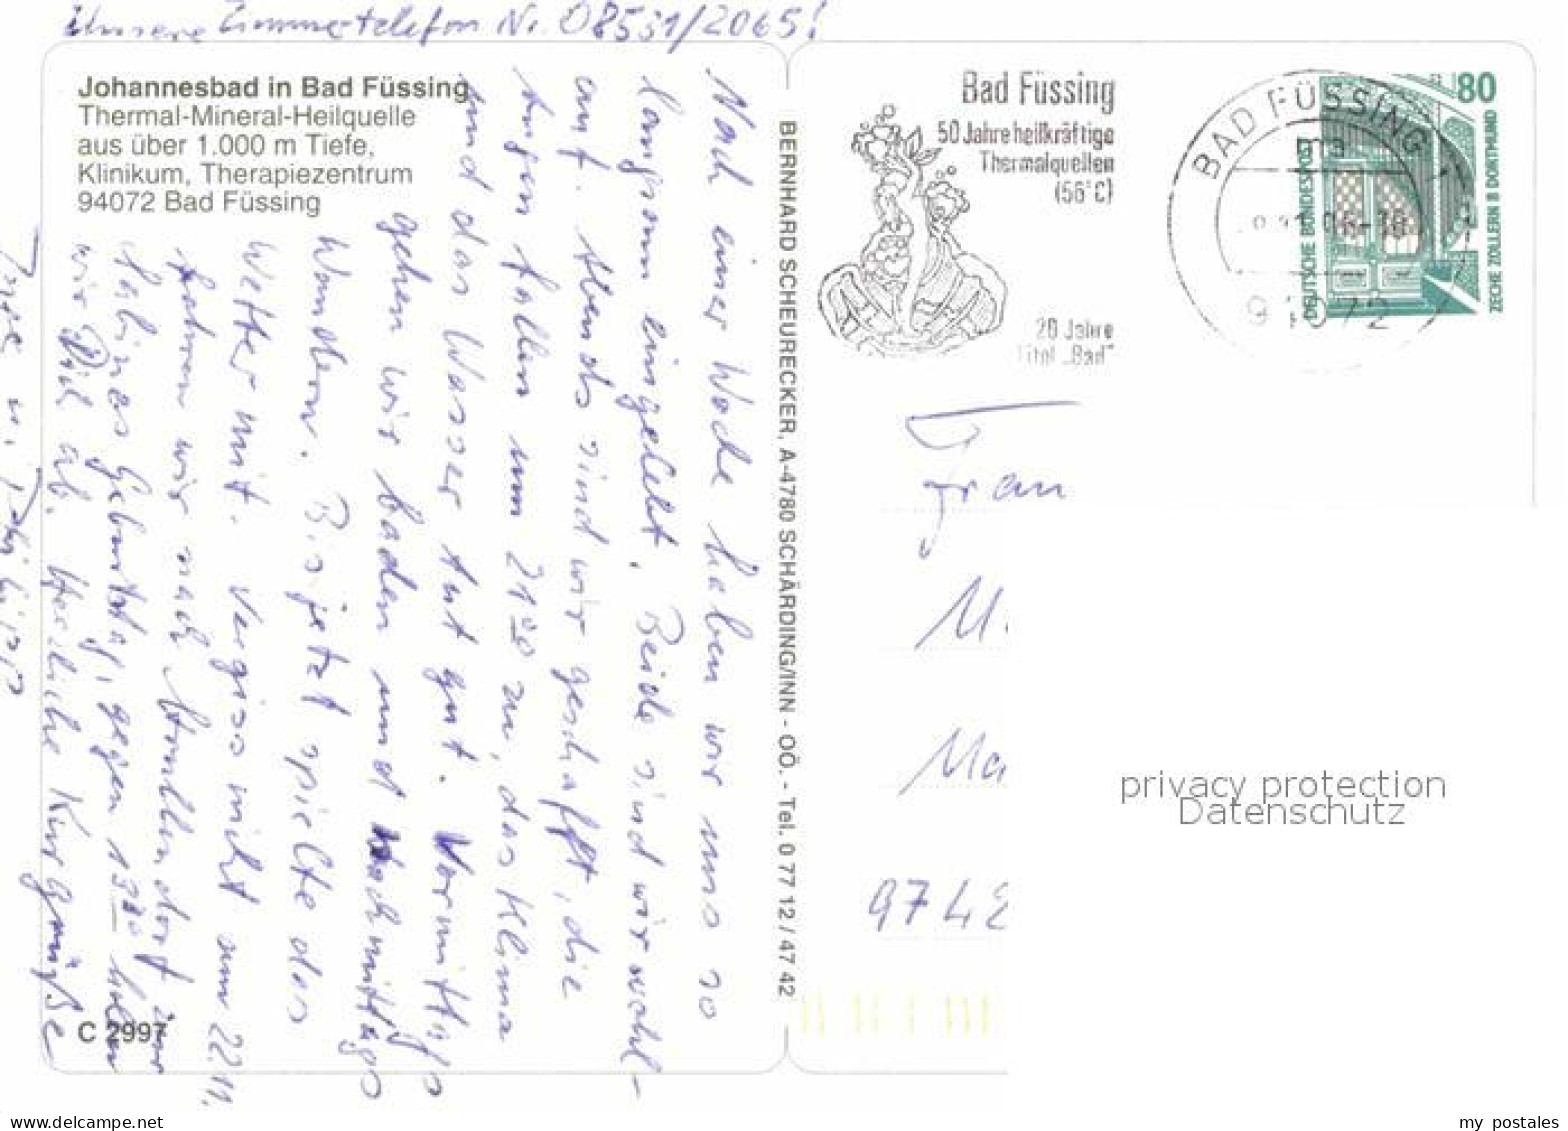 Unsere Zimmertelefon Nr. 08531/2065!
Johannesbad in Bad Füssing
Thermal-Mineral-Heilquelle
aus über 1.000 m Tiefe,
Klinikum, Therapiezentrum
94072 Bad Füssing
Nach einer Woche haben wir uns so
langsam eingelebt. Beide sind wir wohl-
auf. Abends sind wir geschafft, die
Augen fallen um 21°° zu, das Klima
und das Wasser tut gut. Vormittags
gehen wir baden und Nachmittags
Wandern. Bis jetzt spielte das
Wetter mit. Vergiss nicht am 22.11.
fahren wir nach zur
Sabines Geburtstag, gegen 13°° holen
wir Dich ab. Herzliche Kurgrüße
u.
C 2997
BERNHARD SCHEURECKER, A-4780 SCHÄRDING/INN - OÖ. - Tel. 0 77 12 / 47 42
Bad Füssing
50 Jahre heilkräftige
Thermalquellen
(56°C)
20 Jahre
Titel „Bad"
BAD FÜSSING 1
ma
94072
80
DEUTSCHE BUNDESPOST
ZECHE ZOLLERN II DORTMUND
Frau
M.
Ma
9742
privacy protection
Datenschutz
my postales